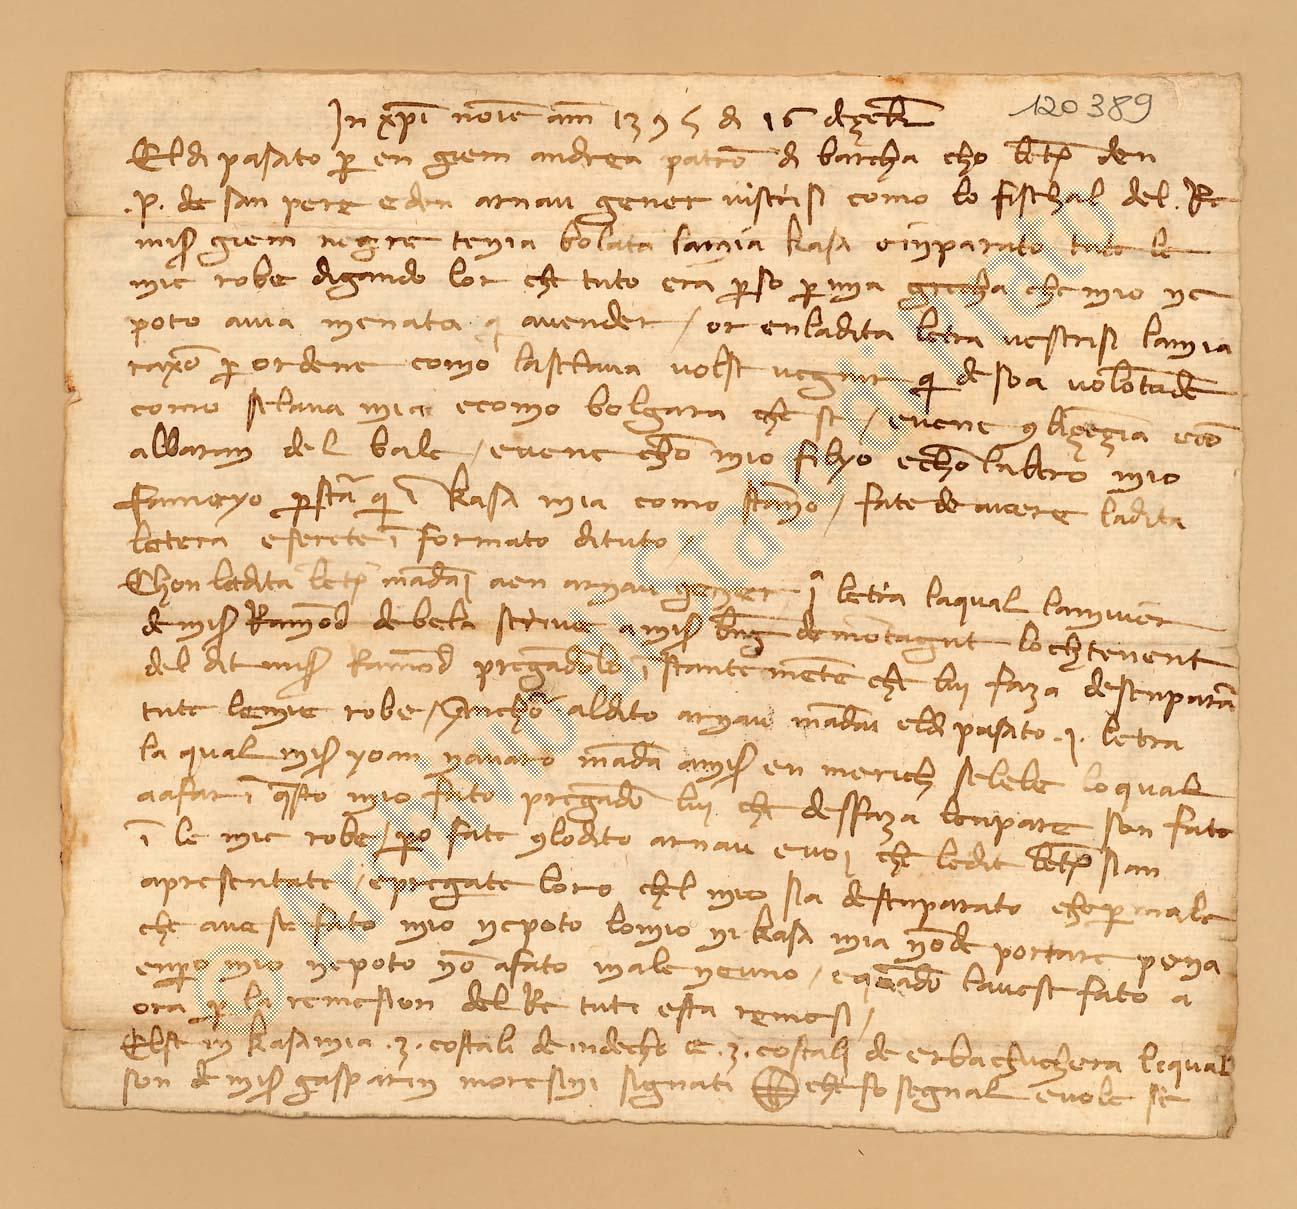 120389
In xpi noie am 1395 di 16 dezebr
El di pasato p en giem andrea patro di barcha cho letr den
.p. de san pere e den arnau gener vi scrisi como lo fischal del Re
mis giem negre tenia bolata la mia kasa e inparato tute le
mie robe digando lor che tuto era pso p mia grecha che mio ne
poto avia menata q a vender / or en la dita letra ve scrisi la mia
raxo p ordene como la sclava volse vegnir q de soa volontade
como sclava mia e como bolgara che se / e vene eco
albaram del bale / e vene cho mio filyo e cho labero mio
fameyo p sta q i kasa mia como stamo / fate de avere la dita
letera e serete i formato di tuto
Chon le dita letr madai a en arnau gener / j letra la qual la muier
de mis Ramod de bela scrive a mis de motagut lochtenent
del dit mis Ramod pregadolo i stantemete che lui faza desenpara
tute le mie robe / Ancho al dito arnau madai el di pasato .j. letra
la qual mis yoan navaro mada a mis en merich selele lo qual
a afar i qsto mio fato pregado lui che desfaza lenpare son fate
i le mie robe / po fate lo dito arnau e voi che le dite letr sian
apresentate / e pregate loro chel mio sia desenparato e che p male
che avese fato mio nepoto lo mio ni kasa mia no de portare pena
enpo mio nepoto no a fato male nevuno / e quado lavese fato a
ora p la remesion del Re tuti esta remesi /
El se in kasa mia .3. costali de indecho e .3. costali de erbachuchera le qual
son de mis gasparin moresini signati che so segnal e vole se